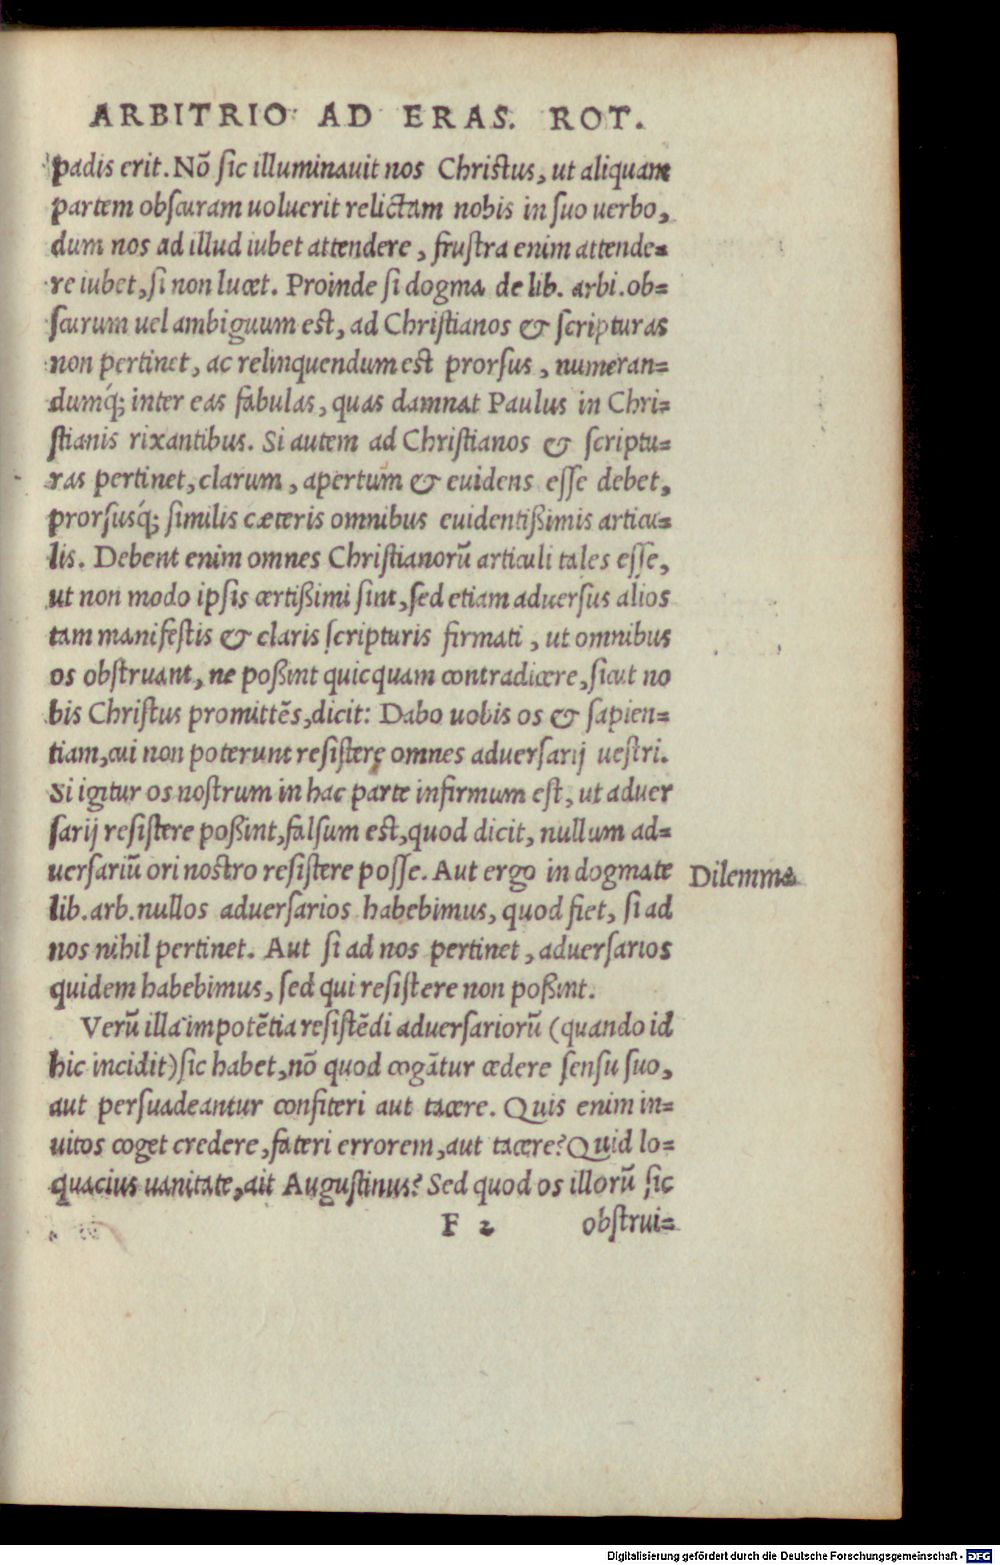 ARBITRIO AD ERAS. ROT.
padis erit. Nō sic illuminauit nos Christus, ut aliquam
partem obscuram uoluerit relictam nobis in suo uerbo,
dum nos ad illud iubet attendere, frustra enim attende=
re iubet, si non lucet. Proinde si dogma de lib. arbi. ob=
scurum uel ambiguum est, ad Christianos & scripturas
non pertinet, ac relinquendum est prorsus, numeran=
dumq́; inter eas fabulas, quas damnat Paulus in Chri=
stianis rixantibus. Si autem ad Christianos & scriptu=
ras pertinet, clarum, apertum & euidens esse debet,
prorsusq́; similis cæteris omnibus euidentißimis articu=
lis. Debent enim omnes Christianorū articuli tales esse,
ut non modo ipsis certißimi sint, sed etiam aduersus alios
tam manifestis & claris scripturis firmati, ut omnibus
os obstruant, ne poßint quicquam contradicere, sicut no
bis Christus promittēs, dicit: Dabo uobis os & sapien=
tiam, cui non poterunt resistere omnes aduersarij uestri.
Si igitur os nostrum in hac parte infirmum est, ut aduer
sarij resistere poßint, falsum est, quod dicit, nullum ad=
uersariū ori nostro resistere posse. Aut ergo in dogmate
Dilemma
lib. arb. nullos aduersarios habebimus, quod fiet, si ad
nos nihil pertinet. Aut si ad nos pertinet, aduersarios
quidem habebimus, sed qui resistere non poßint.
Verū illa impotētia resistēdi aduersariorū (quando id
hic incidit) sic habet, nō quod cogātur cedere sensu suo,
aut persuadeantur confiteri aut tacere. Quis enim in=
uitos coget credere, fateri errorem, aut tacere? Quid lo=
quacius uanitate, ait Augustinus? Sed quod os illorū sic
F 2 obstrui=
Digitalisierung gefördert durch die Deutsche Forschungsgemeinschaft - DFG